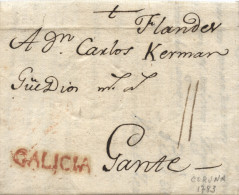 + Flandes
A Dn. Carlos Kerman
Güe Dios m. s.
GALICIA Gante
CORUÑA
1783